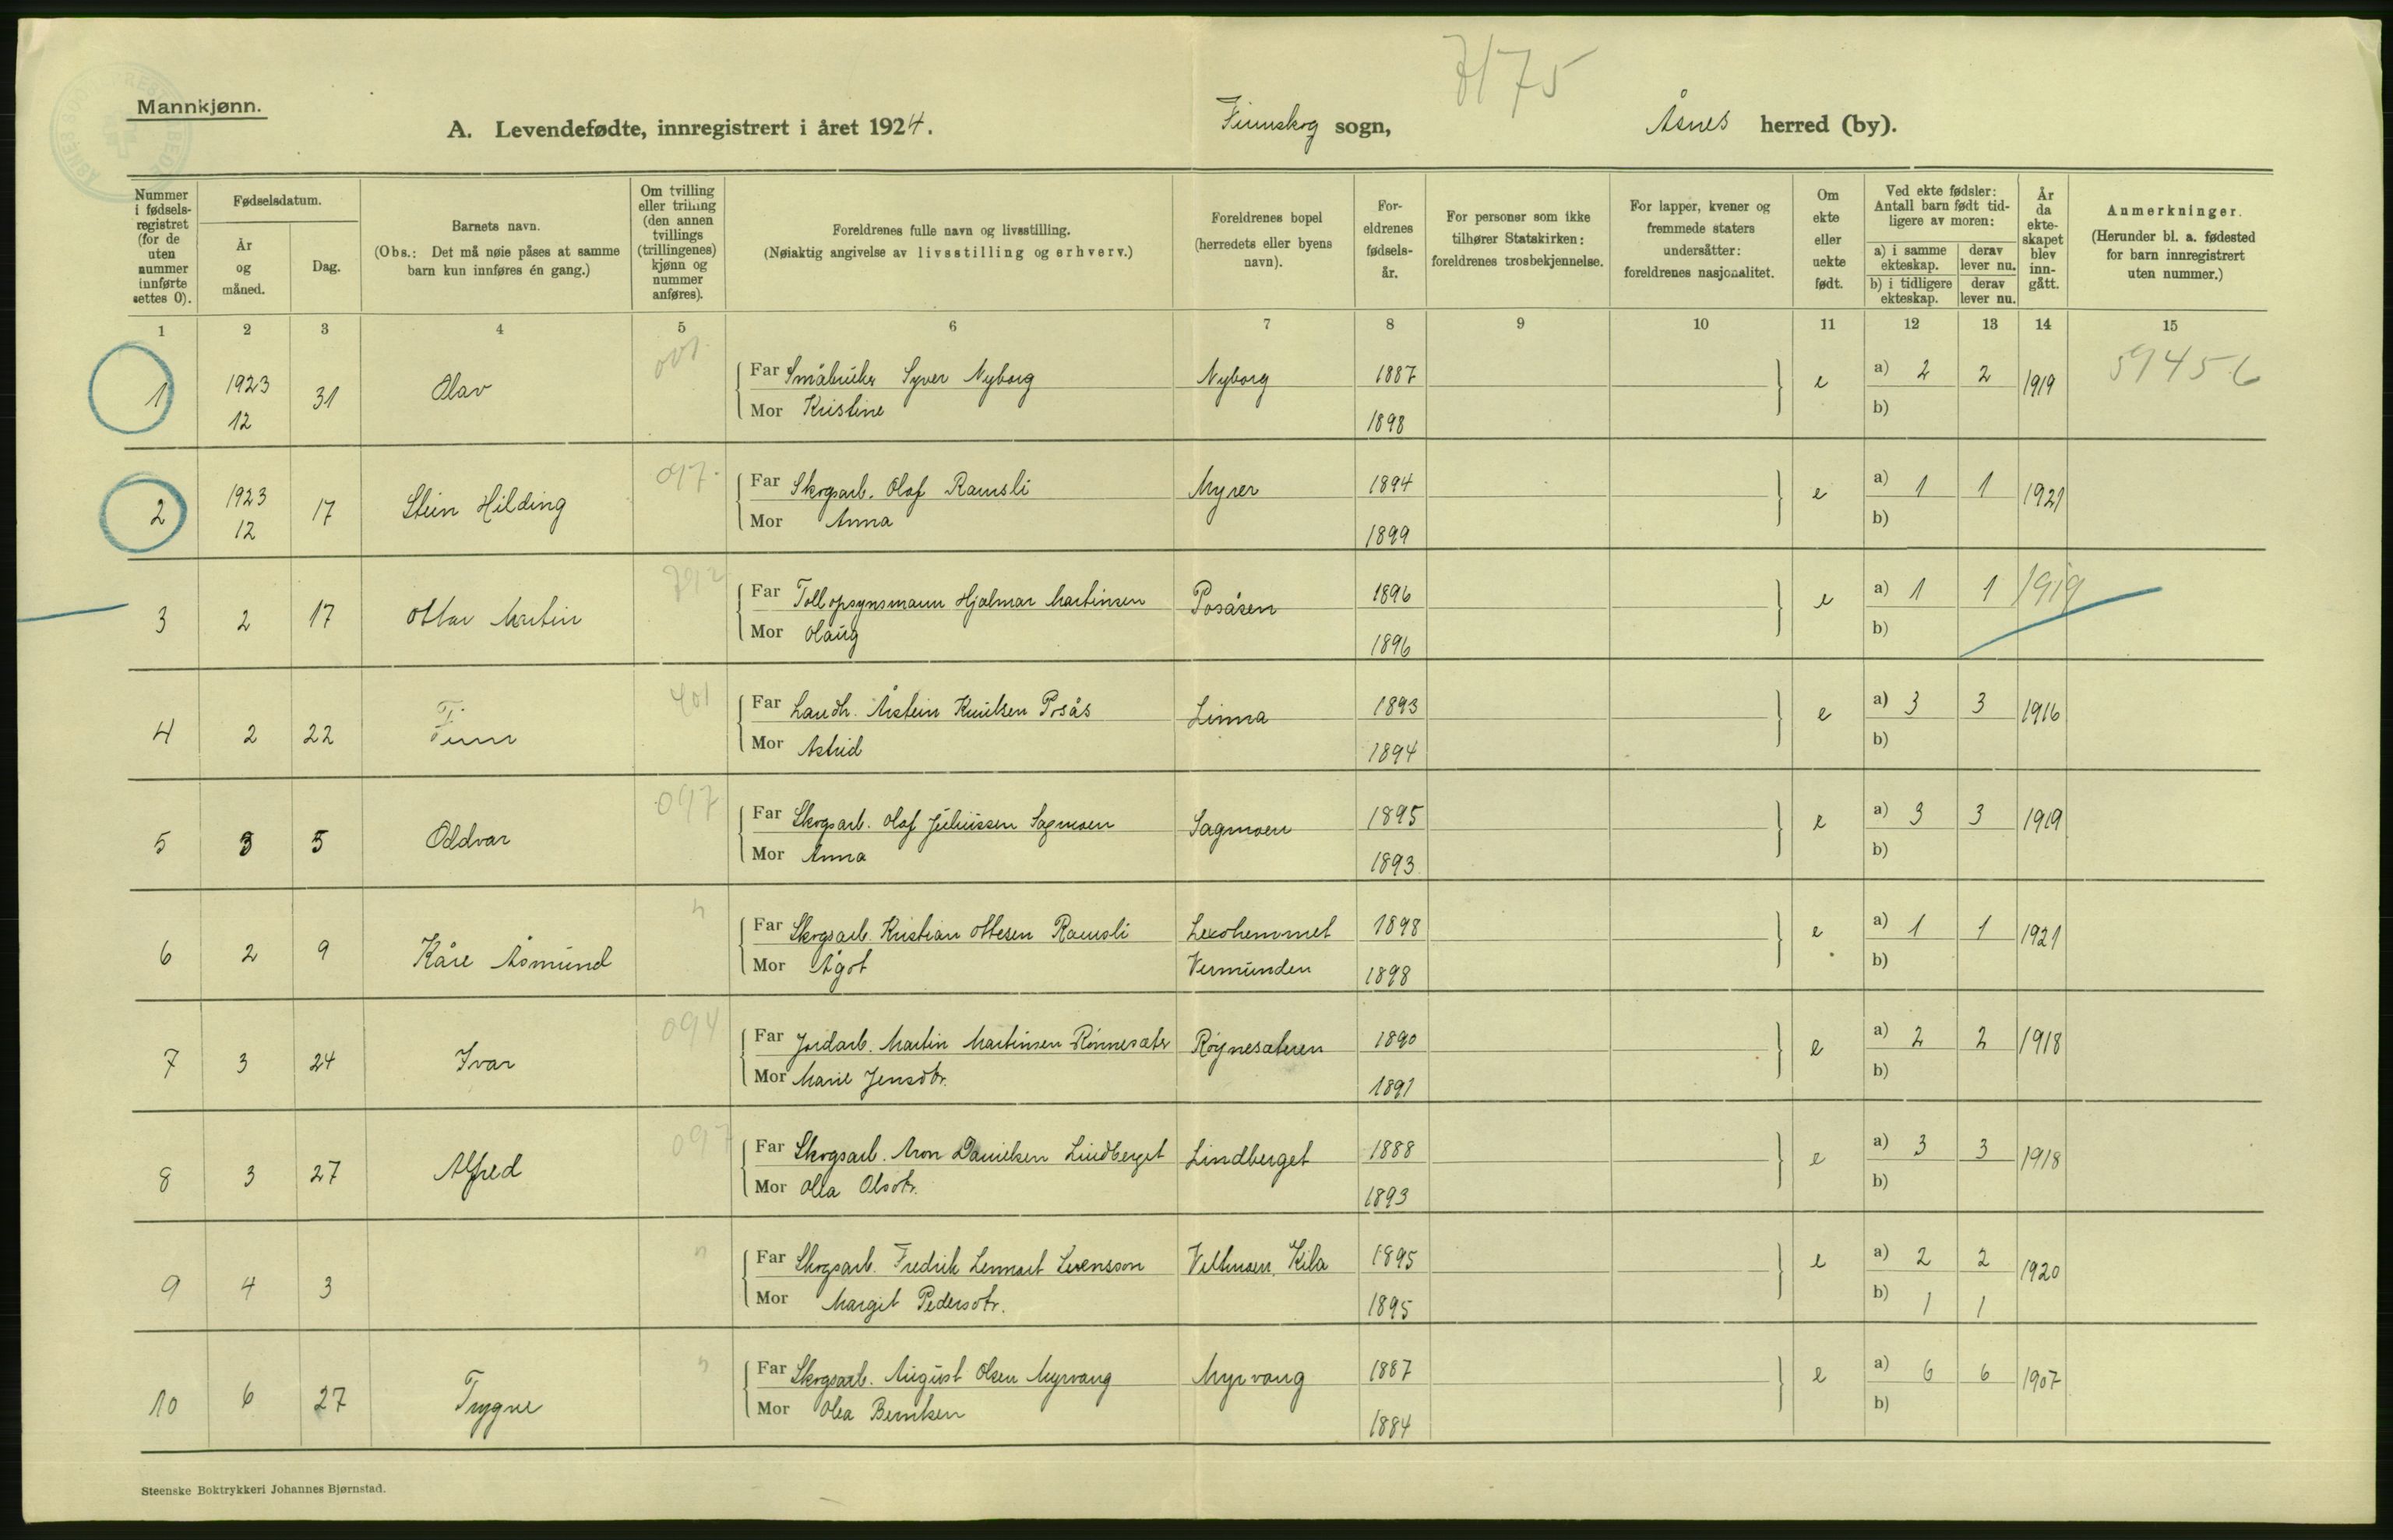 Mannkjønn.
7175
A. Levendefødte, innregistrert i året 1924. Finnskog sogn, Åsnes herred (by).
Nummer i fødselsregistret (for de uten nummer innførte settes 0).
Fødselsdatum.
År og måned.
Dag.
Barnets navn.
(Obs.: Det må nøie påses at samme barn kun innføres én gang.)
Om tvilling eller trilling (den annen tvillings (trillingenes) kjønn og nummer anføres).
Foreldrenes fulle navn og livsstilling.
(Nøiaktig angivelse av livsstilling og erhverv.)
Foreldrenes bopel (herredets eller byens navn).
Foreldrenes fødselsår.
For personer som ikke tilhører Statskirken: foreldrenes trosbekjennelse.
For lapper, kvener og fremmede staters undersåtter: foreldrenes nasjonalitet.
Om ekte eller uekte født.
Ved ekte fødsler: Antall barn født tidligere av moren:
a) i samme ekteskap. derav lever nu.
b) i tidligere ekteskap. derav lever nu.
År da ekteskapet blev inngått.
Anmerkninger.
(Herunder bl. a. fødested for barn innregistrert uten nummer.)
1 2 3 4 5 6 7 8 9 10 11 12 13 14 15
1 1923 12 31 Olav 001. Far Småbruker Syver Nyborg Nyborg 1887 e a) 2 2 1919 59456
Mor Kristine 1898 b)
2 1923 12 17 Stein Hilding 097. Far Skogsarb. Olaf Ramsli Myrer 1894 e a) 1 1 1921
Mor Anna 1899 b)
3 2 17 Ottar Martin Far Tollopsynsmann Hjalmar Martinsen Posåsen 1896 e a) 1 1 1919
Mor Olaug 1896 b)
4 2 22 Finn 401 Far Landh. Åistein Knutsen Posås Linna 1893 e a) 3 3 1916
Mor Astrid 1894 b)
5 3 5 Oddvar 097 Far Skogsarb. Olaf Juliussen Sagmoen Sagmoen 1895 e a) 3 3 1919
Mor Anna 1893 b)
6 2 9 Kåre Åsmund " Far Skogsarb. Kristian Ottesen Ramsli 1898 e a) 1 1 1921
Mor Ågot Vermunden 1898 b)
7 3 24 Ivar 094 Far Jordarb. Martin Martinsen Rønnesæter Røynesæteren 1890 e a) 2 2 1918
Mor Marie Jensdtr. 1891 b)
8 3 27 Alfred 097 Far Skogsarb. Aron Danielsen Lindberget Lindberget 1888 e a) 3 3 1918
Mor Olea Olsdtr. 1893 b)
9 4 3 " Far Skogsarb. Fredrik Lennart Svensson Kila 1895 e a) 2 2 1920
Mor Margit Pedersdtr. 1895 b) 1 1
10 6 27 Trygve " Far Skogsarb. August Olsen Myrvang Myrvang 1887 e a) 6 6 1907
Mor Olea Berntsen 1884 b)
Steenske Boktrykkeri Johannes Bjørnstad.